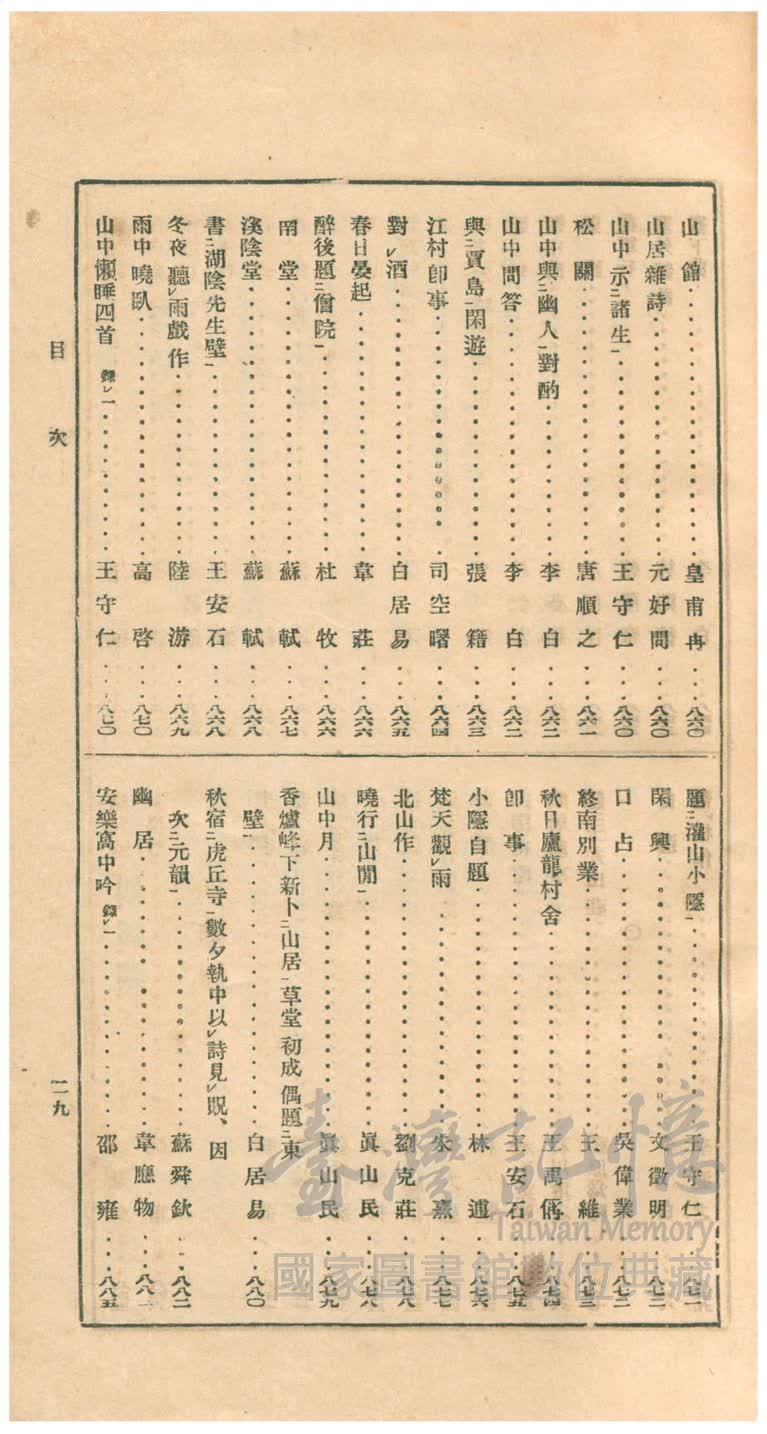 山館……皇甫冉……八六〇
山居雜詩……元好問……八六〇
山中示二諸生一……王守仁……八六〇
松關……唐順之……八六一
山中與二幽人一對酌……李白……八六二
山中問答……李白……八六二
與二賈島一閑遊……張籍……八六三
江村卽事……司空曙……八六四
對レ酒……白居易……八六五
春日晏起……韋莊……八六六
醉後題二僧院一……杜牧……八六六
雨堂……蘇軾……八六七
溪陰堂……蘇軾……八六八
書二湖陰先生壁一……王安石……八六八
冬夜聽レ雨戲作……陸游……八六九
雨中曉臥……高啓……八七〇
山中懶睡四首 錄レ一……王守仁……八七〇
題二灌山小隱一……王守仁……八七一
閑興……文徵明……八七二
口占……吳偉業……八七二
終南別業……王維……八七三
秋日廬龍村舍……王禹偁……八七四
卽事……王安石……八七五
小隱自題……林逋……八七六
梵天觀レ雨……朱熹……八七七
北山作……劉克莊……八七八
曉行二山閒一……眞山民……八七八
山中月……眞山民……八七九
香爐峰下新卜二山居一草堂初成偶題二東
壁一……白居易……八八〇
秋宿二虎丘寺一數夕執中以レ詩見レ貺、因
次二元韻一……蘇舜欽……八八二
幽居……韋應物……八八二
安樂窩中吟 錄レ一……邵雍……八八五
目次
二九
臺灣記憶
Taiwan Memory
國家圖書館數位典藏